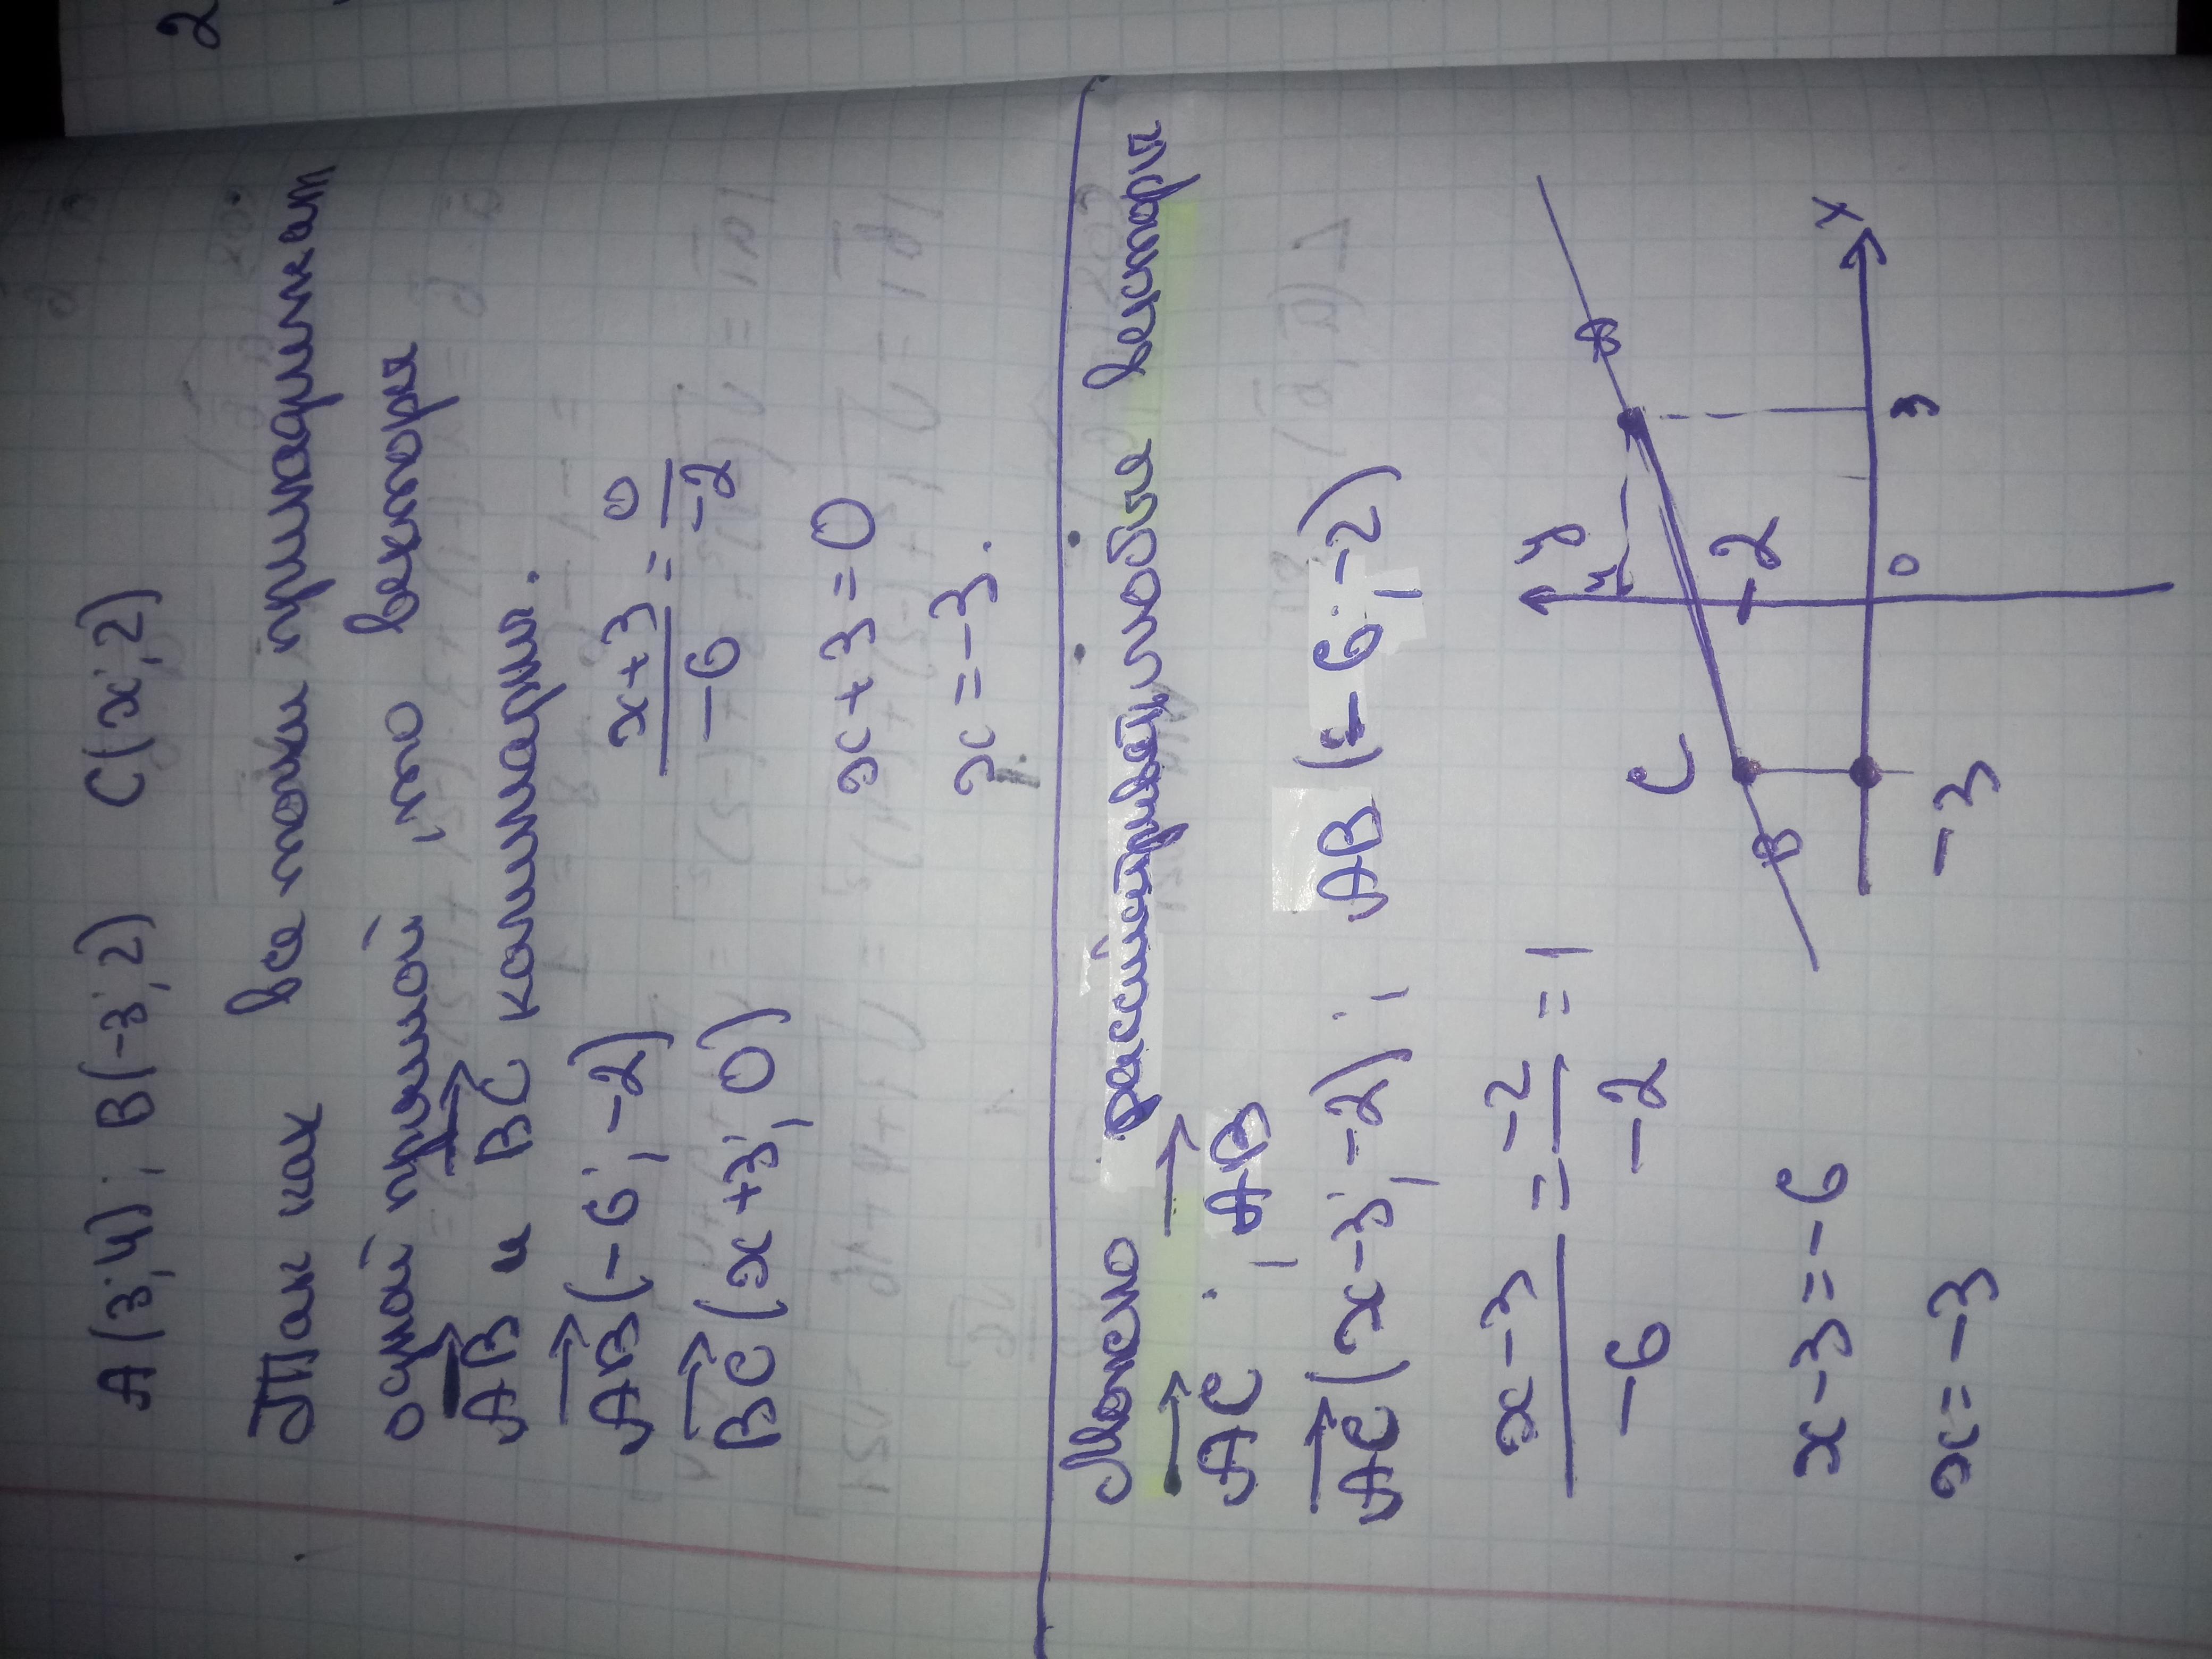 2
A(3;4); B(-3;2) C(x;2)
Так как все точки принадлежат
одной прямой, то вектора
AB и BC коллинеарны.
AB(-6;-2) (x+3)/-6 = 0/-2
BC(x+3;0) x+3=0
x=-3.
Можно рассматривать вектора
AC; AB
AC(x-3;-2); AB(-6;-2)
(x-3)/-6 = -2/-2 = 1
x-3=-6
x=-3
y
4
A
C
2
B
-3
0
3
x